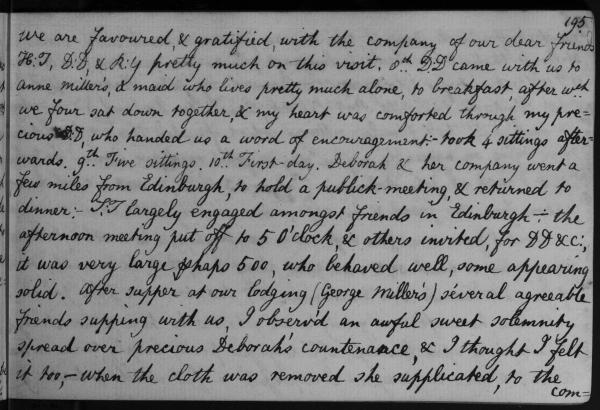 195
we are favoured, & gratified, with the company of our dear friends
H:T, D:D, & R:Y pretty much on this visit, 8th D.D came with us to
anne miller's, a maid who lives pretty much alone, to breakfast, after wch
we four sat down together, & my heart was comforted through my pre=
cious D:D, who handed us a word of encouragement:- took 4 sittings after-
wards. 9th Five sittings. 10th First-day. Deborah & her company went a
few miles from Edinburgh, to hold a publick-meeting, & returned to
dinner:- S.T largely engaged amongst friends in Edinburgh ÷ the
afternoon meeting put off to 5 O'clock, & others invited, for DD &c:,
it was very large phaps 500, who behaved well, some appearing
solid. After supper at our lodging (George Miller's) several agreeable
friends supping with us, I observ'd an awful sweet solemnity
spread over precious Deborah's countenance, & I thought I felt
it too,- when the cloth was removed she supplicated, to the
com=